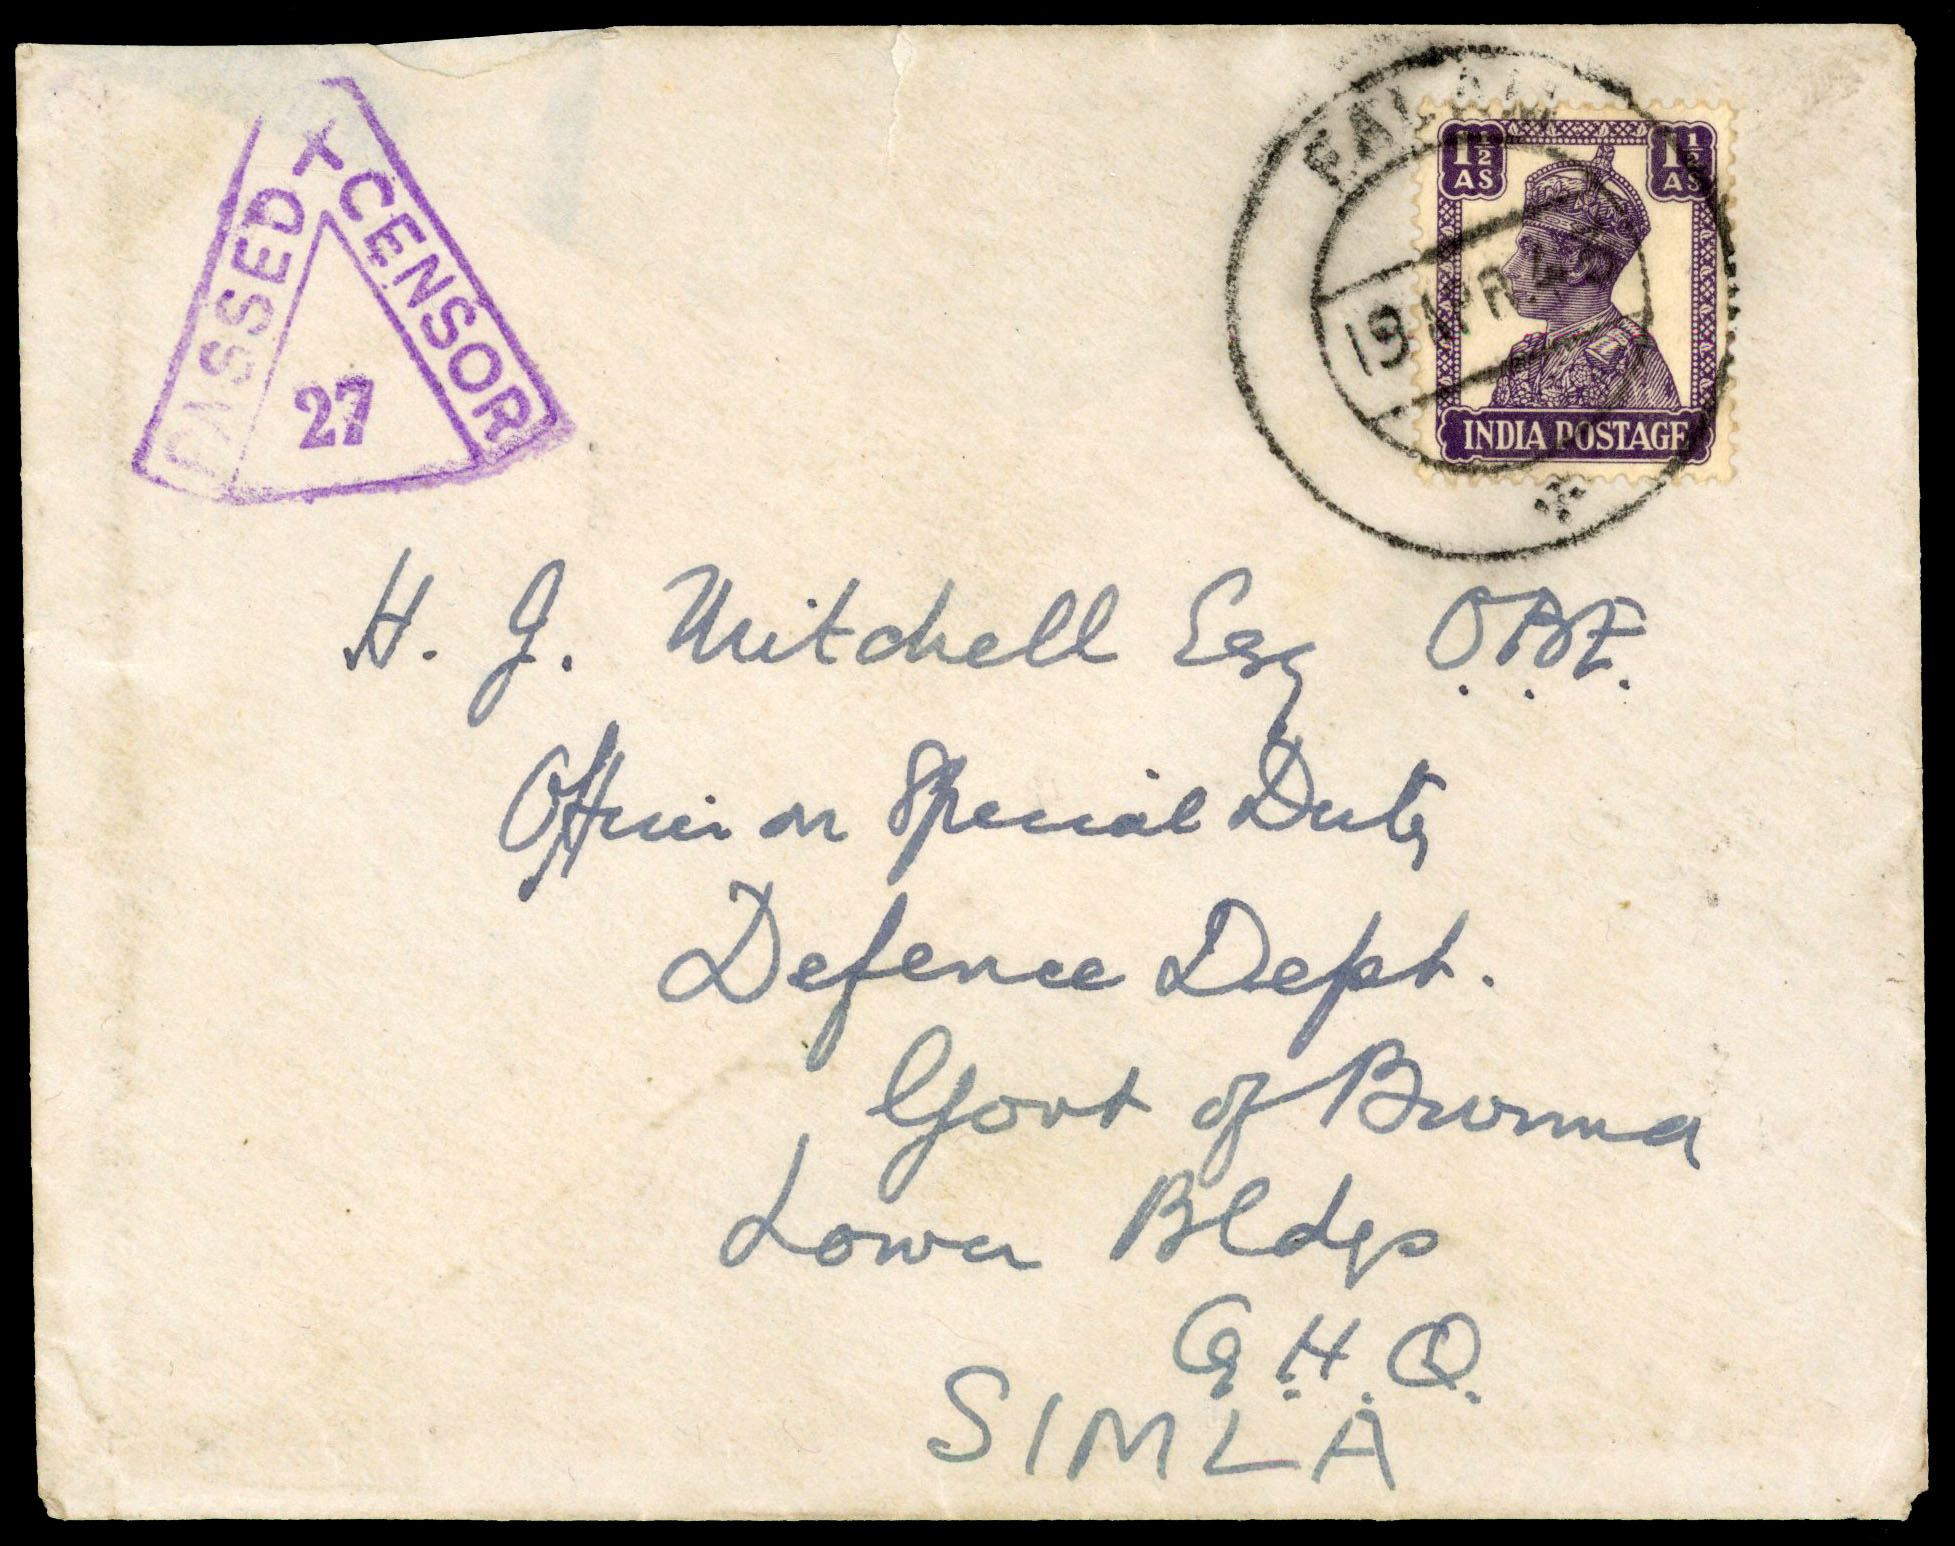 PASSED CENSOR
27
FALAM
19 APR.4
1½ AS 1½ AS
INDIA POSTAGE
H. G. Mitchell Esq O.B.E.
Officer on Special Duty
Defence Dept.
Govt of Burma
Lower Bldgs
G.H.Q.
SIMLA